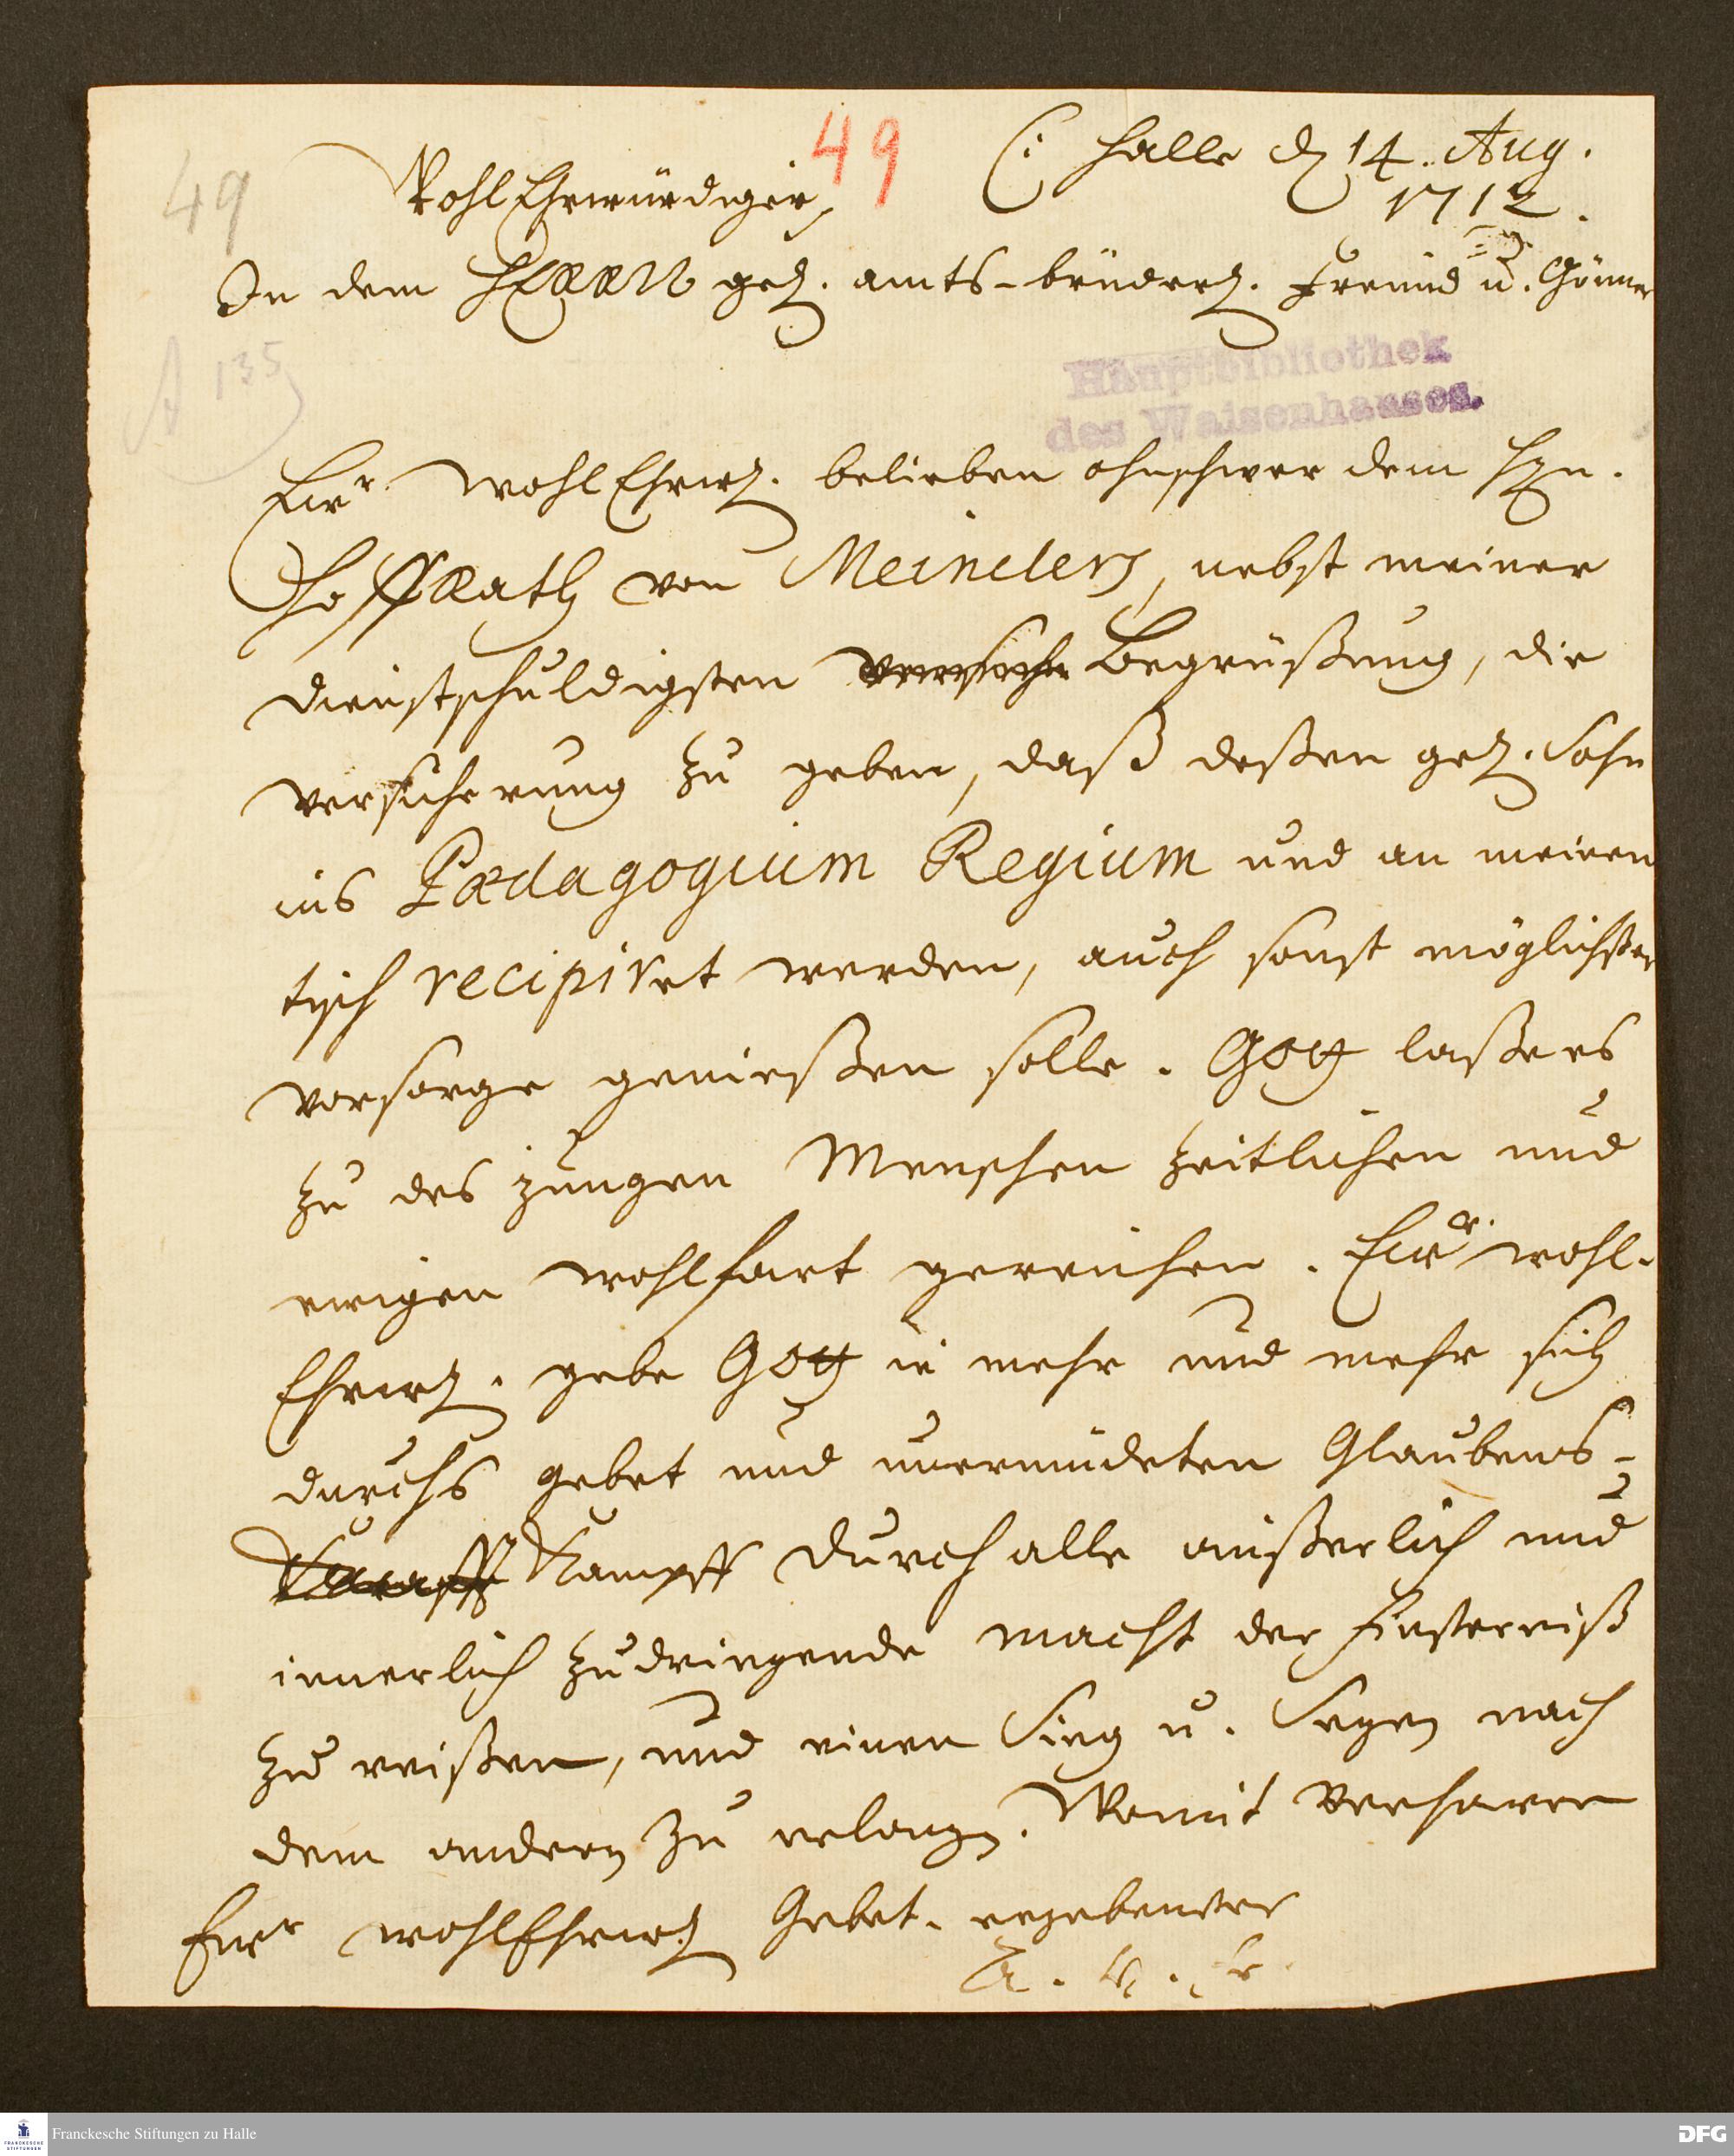 49
Halle d 14. Aug.
1712.
49
WohlEhrwürdiger,
In dem HERRN gel. amts-brüderl. Freund u. Gönner
A 135
Hauptbibliothek
des Waisenhauses.
Ewr. WohlEhrw. belieben ohnschwer dem Hrn.
HoffRath von Meinders, nebst meiner
dienstschuldigsten Begrüßung, die
versicherung zu geben, daß deßen gel. Sohn
ins Pædagogium Regium und an meinen
tisch recipiret werden, auch sonst möglichster
vorsorge genießen solle. Gott laße es
zu des jungen Menschen zeitlichen und
ewigen wohlfart gereichen. Ewr. wohl-
Ehrw. gebe Gott ie mehr und mehr sich
durchs gebet und unermüdeten Glaubens-
Kampff durch alle äußerlich und
innerlich zudringende macht der Finsterniß
zu reißen, und einen Sieg u. Segen nach
dem andern zu erlangen. Womit verharre
Ewr WohlEhrw. Gebet. ergebenster
A. H. Fr.
Franckesche Stiftungen zu Halle
FRANCKESCHE
STIFTUNGEN
DFG